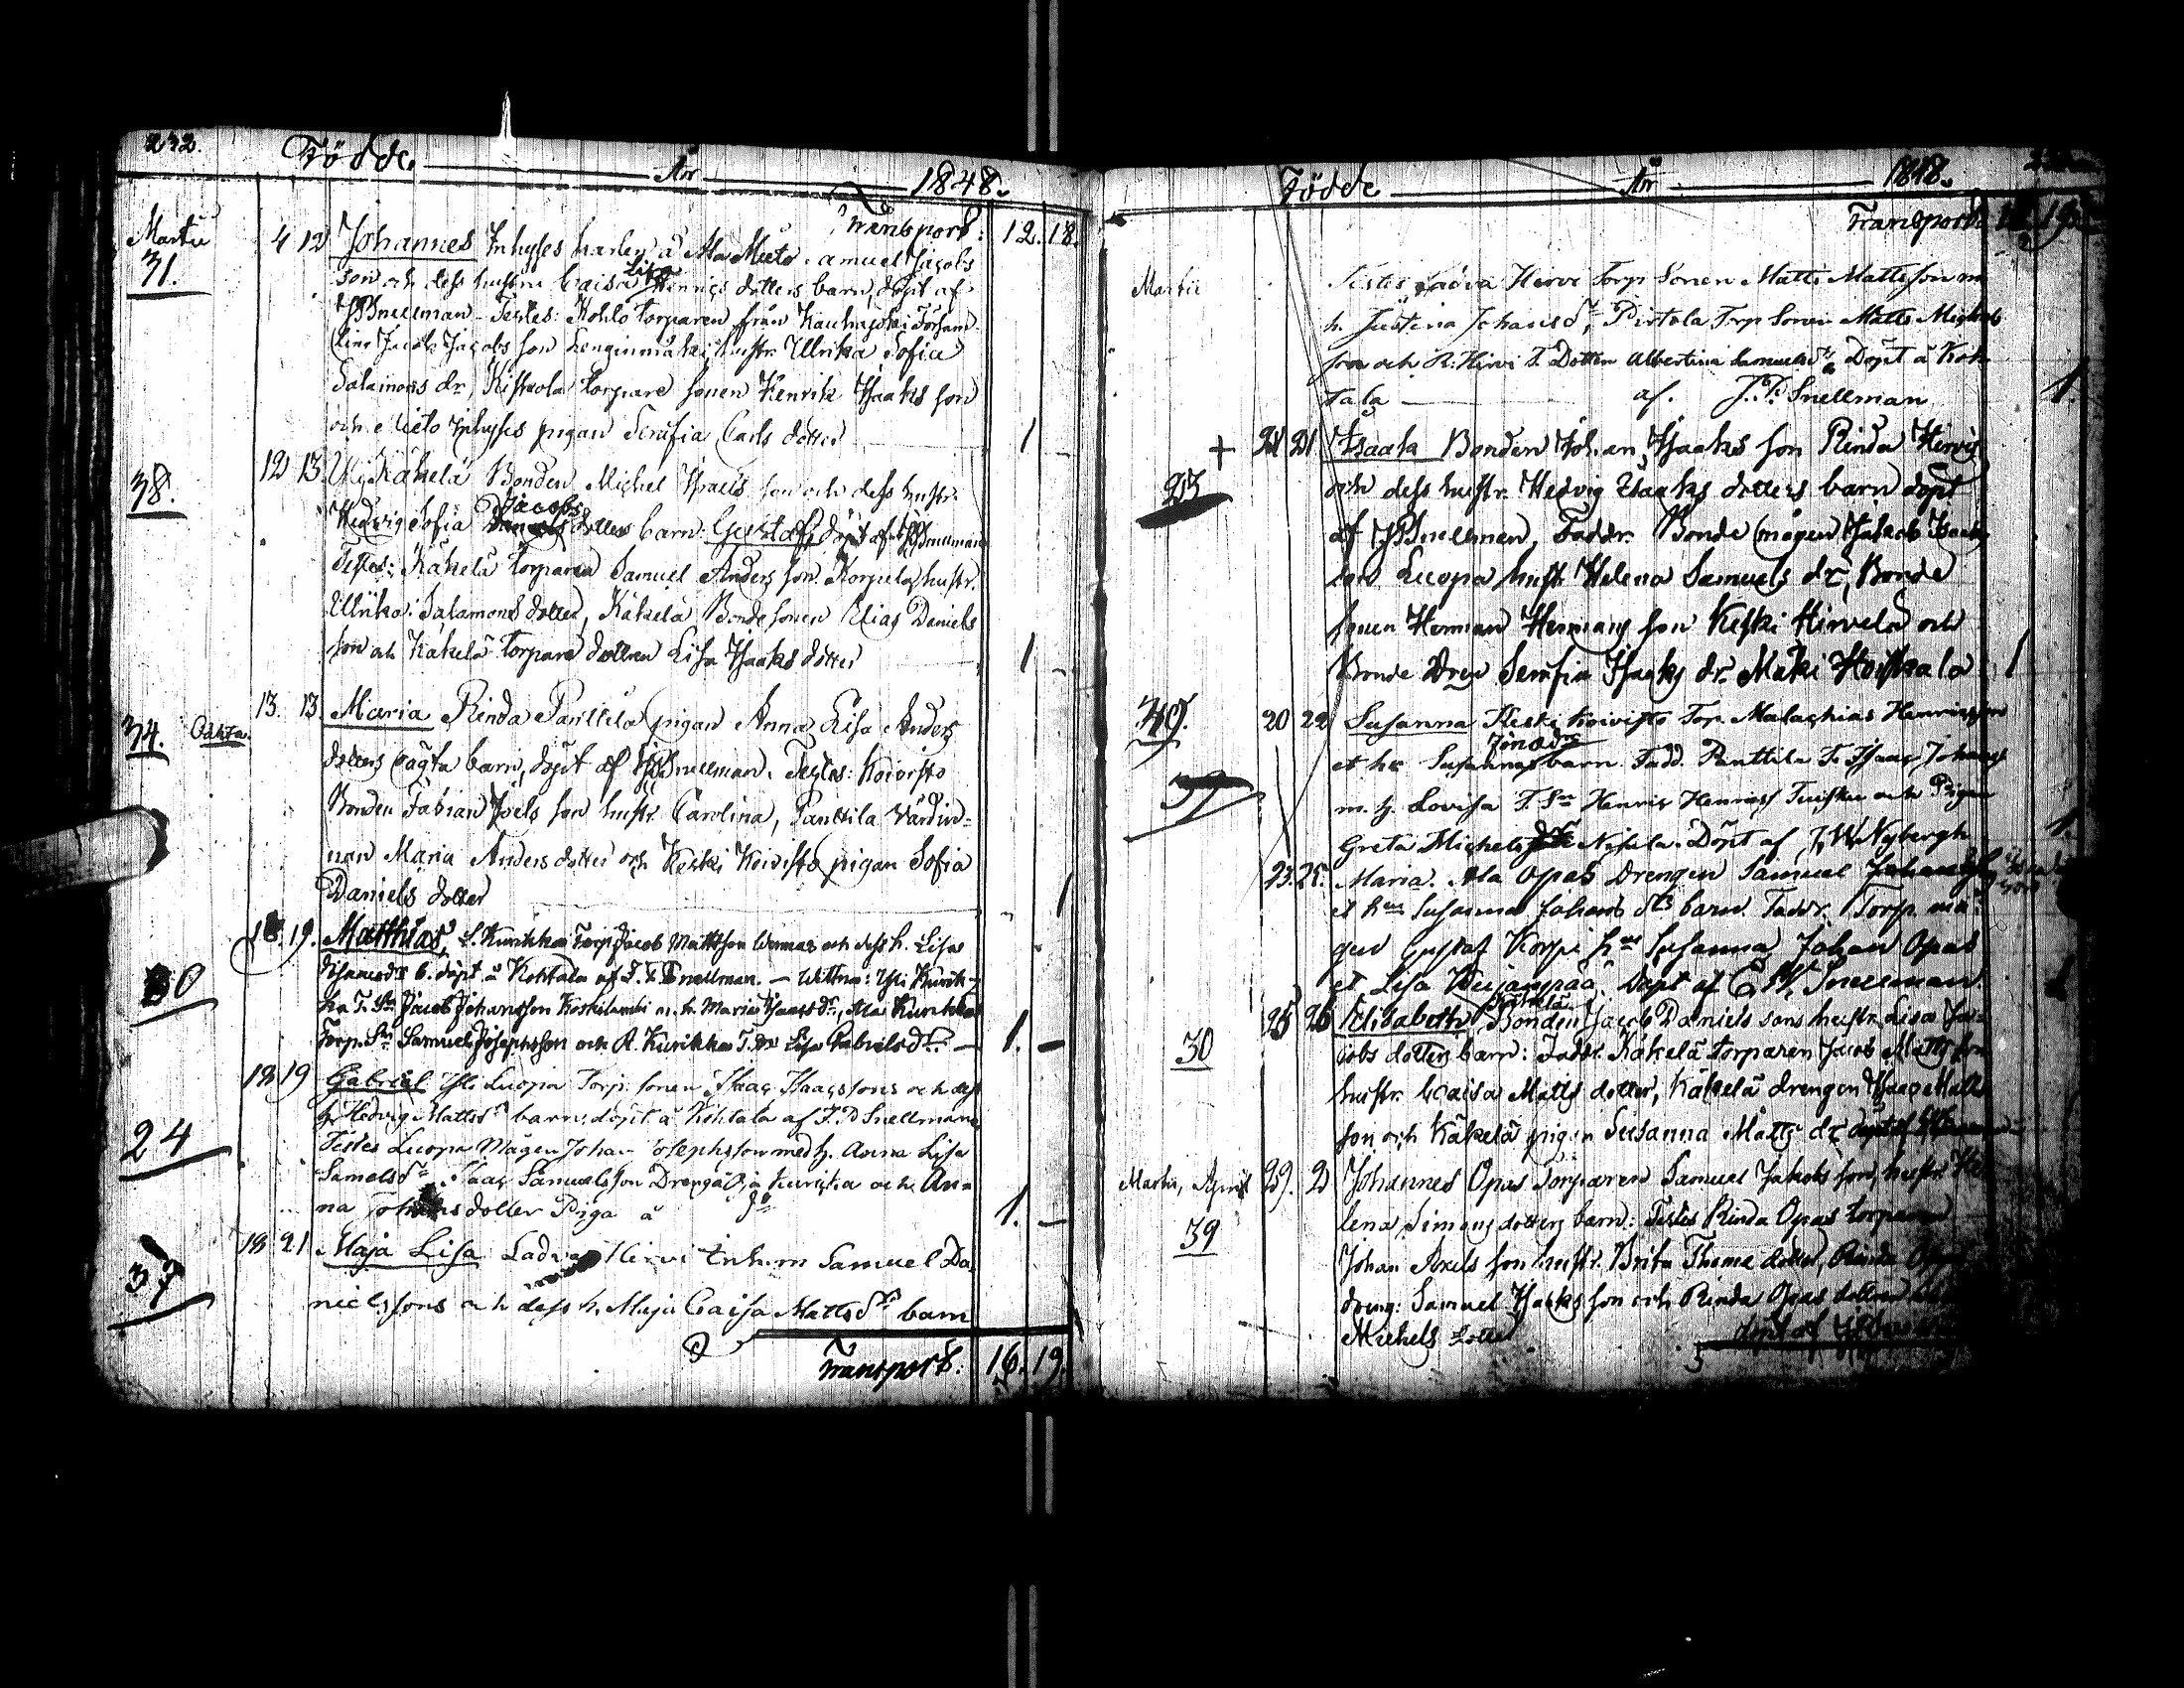 242.
Födde. År 1848.
Transport: 12. 18.
Martii 4 12 Johannes Inhyses karlen å Ala Mieto Samuel Jacobs
31. son och dess hustru Caisa Lisa Henrics dotters barn, döpt af
JPSnellman - Testes: Kohlo torparen från Kauhajoki Församling
Jacob Jacobs son Lenginmäki, hustr. Ulrika Sofia
Salamons dr, Kiskola torpare sonen Henrik Isaaks son
och Mieto Inhyses pigan Serafia Carls dotter 1
38. 12 13. Yli Käkelä Bonden Michel Isaks son och dess hustr.
Hedvig Sofia Jacobs dotters barn: Gustaf, döpt af JPSnellman
Testes: Käkelä torparen Samuel Anders son Korpela, hustr.
Ulrika Salamons dotter, Käkelä Bonde sonen Elias Daniels
son och Käkelä torpare dottren Lisa Isaaks dotter 1
34. Oäkta. 13. 13. Maria Rinda Panttila pigan Anna Lisa Anders
dotters oägta barn, döpt af JPSnellman. Testes: Koivisto
Bonden Fabian Joels son hustr. Carolina, Panttila Värdin-
nan Maria Anders dotter och Keski Koivisto pigan Sofia
Daniels dotter 1
30 18 19. Matthias, L. Kurikka Torp. Jacob Mattsson och dess h. Lisa
Isaacs dr b. döpt å Kohtala af J. P. Snellman. - Wittna: Yli Kurik-
ka T. Sn Jacob Johansson Koskilambi m. h. Maria Isaacs dr, Ala Kurikka
Torp. Sn Samuel Josephsson och A. Kurikka T. dr Lisa Gabriels dr. 1. -
24 18 19 Gabriel Yli Luopa Torp. sonen Isaac Isaacssons och dess
h. Hedvig Matts dr barn döpt å Kohtala af J. P Snellman
Testes Luopa Mågen Johan Josephsson med h. Anna Lisa
Samels dr Isaac Samuelsson Dreng å Kurikka och An-
na Johans dotter Piga å do 1. -
37 18 21 Maja Lisa Ladva Hirvi Inh. m Samuel Da-
nielssons och dess h. Maja Caisa Matts drs barn
Transport: 16. 19.
Födde År 1848.
Transport
Martii Testes Ladva Hirvi Torp Sonen Matts Mattsson m
h. Justina Johans dr, Pirtola Torp Sonen Matts Michels
son och R. Hirvi T. Dottern Albertina Samuels dr Döpt å Koh-
tala af. J. P. Snellman 1.
+ 21 21 Isaak Bonden Johan Isaaks son Rinda Hirvis
25 och dess hustr. Hedvig Isaaks dotters barn döpt
af JPSnellman, Faddr. Bonde mågen Jakob Isaaks
son Luopa hustr Helena Samuels dr, Bonde
sonen Herman Hermans son Keski Hirvelä och
Bonde Dren Serafia Isaaks dr. Mäki Koiskala 1
39. 20 22 Susanna Keski Koivisto Torp. Malachias Henricsson
et hu Susannas Jonæ drs barn. Fadd. Panttila T. Isaac Johans
37 m. h. Lovisa T. Sn Henric Henricss Tuisku och Pigan
Greta Michels Döpt af J. W. Nybergh 1.
23. 25. Maria. Ala Opas Drengen Samuel
et hus Susanna Johans drs barn. Faddr. Torp. må-
gen Gustaf Korpi hus Susanna Johan Opas
et Lisa Weijanpää. Döpt af E. W. Snellman. 1
30 25 26 Elisabeth Käkelä Bonden Jacob Daniels sons hustr. Lisa Ja-
cobs dotters barn: Faddr. Käkelä torparen Jacob Matts son
hustr. Caisa Matts dotter, Käkelä drengen Isaac Matts
son och Käkelä pigan Susanna Matts dr
Martii, April 29. 2 Johannes Opas Torparen Samuel Jakobs son, hustr. He-
39 lena Simons dotters barn: Testes Rinda Opas torparen
Johan Axels son hustr. Brita Thomæ dotter, Rinda Opas
dreng: Samuel Isaaks son och Rinda Opas dottren
Michels dotter döpt af